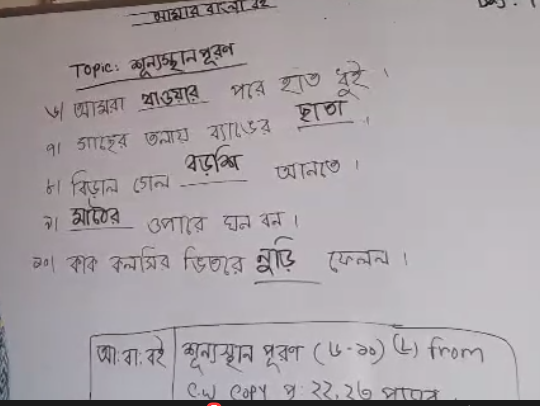 আমার বাংলা বই
Topic: শূন্যস্থান পূরণ
৬। আমরা খাওয়ার পরে হাত ধুই।
৭। গাছের তলায় ব্যাঙের ছাতা।
৮। বিড়াল গেল বড়শি আনতে।
৯। মাঠের ওপারে ঘন বন।
১০। কাক কলসির ভিতরে নুড়ি ফেলল।
আ: বা: বই শূন্যস্থান পূরণ (৬-১০) (L) from
C.W copy পৃ: 22, 26